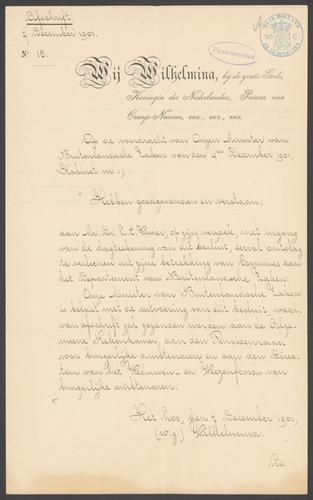 Afschrift.
5 December 1901.
No. 18.
Pensioenraad
ZUID HOLLAND
50 C.
Wij Wilhelmina, bij de gratie Gods,
Koningin der Nederlanden, Prinses van
Oranje-Nassau, enz., enz., enz.
Op de voordracht van Onzen Minister van
Buitenlandsche Zaken van den 4den December 1901,
Kabinet no. 1;
Hebben goedgevonden en verstaan:
aan Mr. Dr. op zijn verzoek, met ingang
van de dagteekening van dit besluit, eervol ontslag
te verleenen uit zijne betrekking van Commies aan
het Departement van Buitenlandsche Zaken.
Onze Minister van Buitenlandsche Zaken
is belast met de uitvoering van dit besluit, waar-
van afschrift zal gezonden worden aan de Alge-
meene Rekenkamer, aan den Pensioenraad
voor burgerlijke ambtenaren en aan den Direc-
teur van het Weduwen- en Weezenfonds van
burgerlijke ambtenaren.
Het Loo, den December 1901,
(w.g.) Wilhelmina.
De